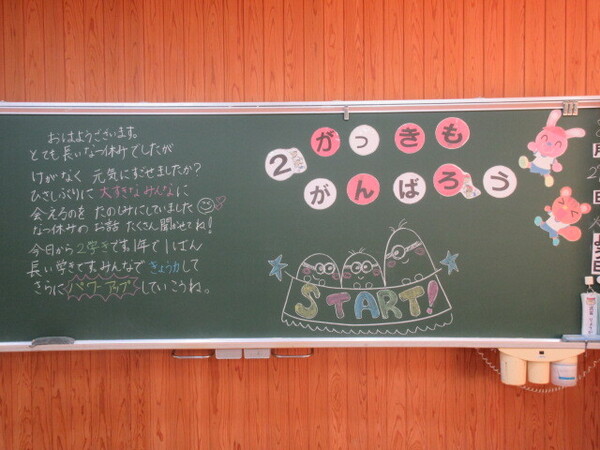 おはようございます。
とても長いなつ休みでしたが
けがなく 元気にすごせましたか?
ひさしぶりに 大すきな みんなに
会えるのを たのしみにしていました
なつ休みの お話 たくさん聞かせてね!
今日から2学きです。1年で1ばん
長い学きです。みんなで きょう力して
さらに パワーアップ していこうね。
2がっきも
がんばろう
START!
月
日